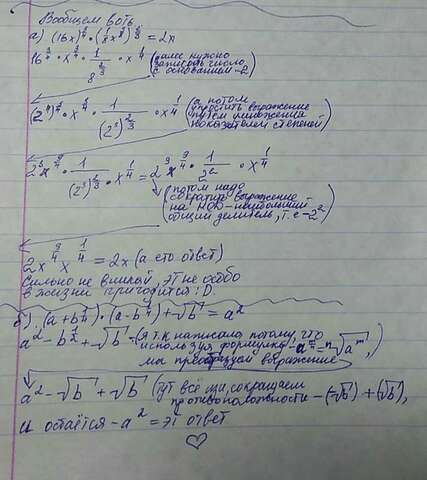 Вообщем воть
а) (16x)^{3/4} · (1/8 x^{3/8})^{2/3} = 2x
16^{3/4} · x^{3/4} · 1/8^{2/3} · x^{1/4} (далее нужно
записать число
с основанием-2
(2^4)^{3/4} · x^{3/4} · 1/(2^3)^{2/3} · x^{1/4} (а потом
упростить выражение
путём умножения
показателей степеней)
2^3 x^{3/4} · 1/(2^3)^{2/3} · x^{1/4} = 2^3 x^{3/4} · 1/2^2 · x^{1/4}
(потом надо
сократить выражение
на НОД-наибольший
общий делитель, т.е-2^2)
2x^{3/4} x^{1/4} = 2x (а ето ответ)
Сильно не вникай, эт не особо
в жизни пригодится :D.
б) (a+b^{1/4}) · (a-b^{1/4}) + √b = a^2
a^2 - b^{1/2} + √b - (я т.к написала потому, что
используя формулку a^{m/n} = ^n√a^m,
мы преобразуем выражение)
a^2 - √b + √b (тут всё ти, сокращаем
противоположности - (-√b) + (√b),
и остаётся - a^2 = эт ответ
♡